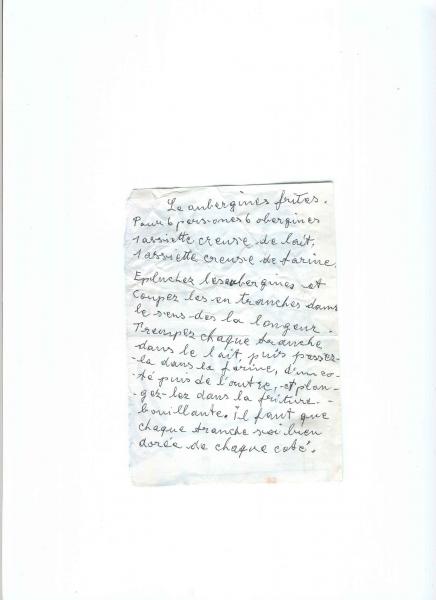 Le aubergines frites.
Pour 6 persones 6 obergines
1 assiette creuse de lait,
1 assiette creuse de farine.
Epluchez les aubergines et
coupez les en tranches dans
le sens des la longeur.
Trempez chaque tranche
dans le lait, puis passez-
-la dans la farine, d'un co-
-té puis de l'autre, et plon-
-gez-lez dans la friture -
bouillante. Il faut que
chaque tranche soi bien
dorée de chaque coté.